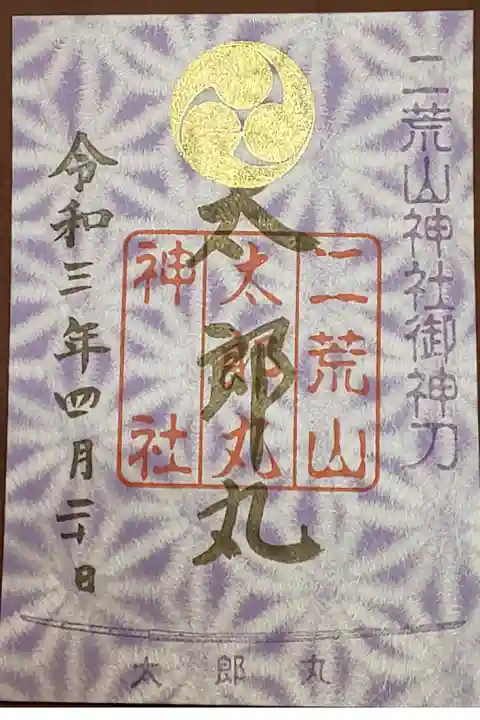 二荒山神社御神刀
太郎丸
二荒山
太郎丸
神社
令和三年四月二十日
太郎丸